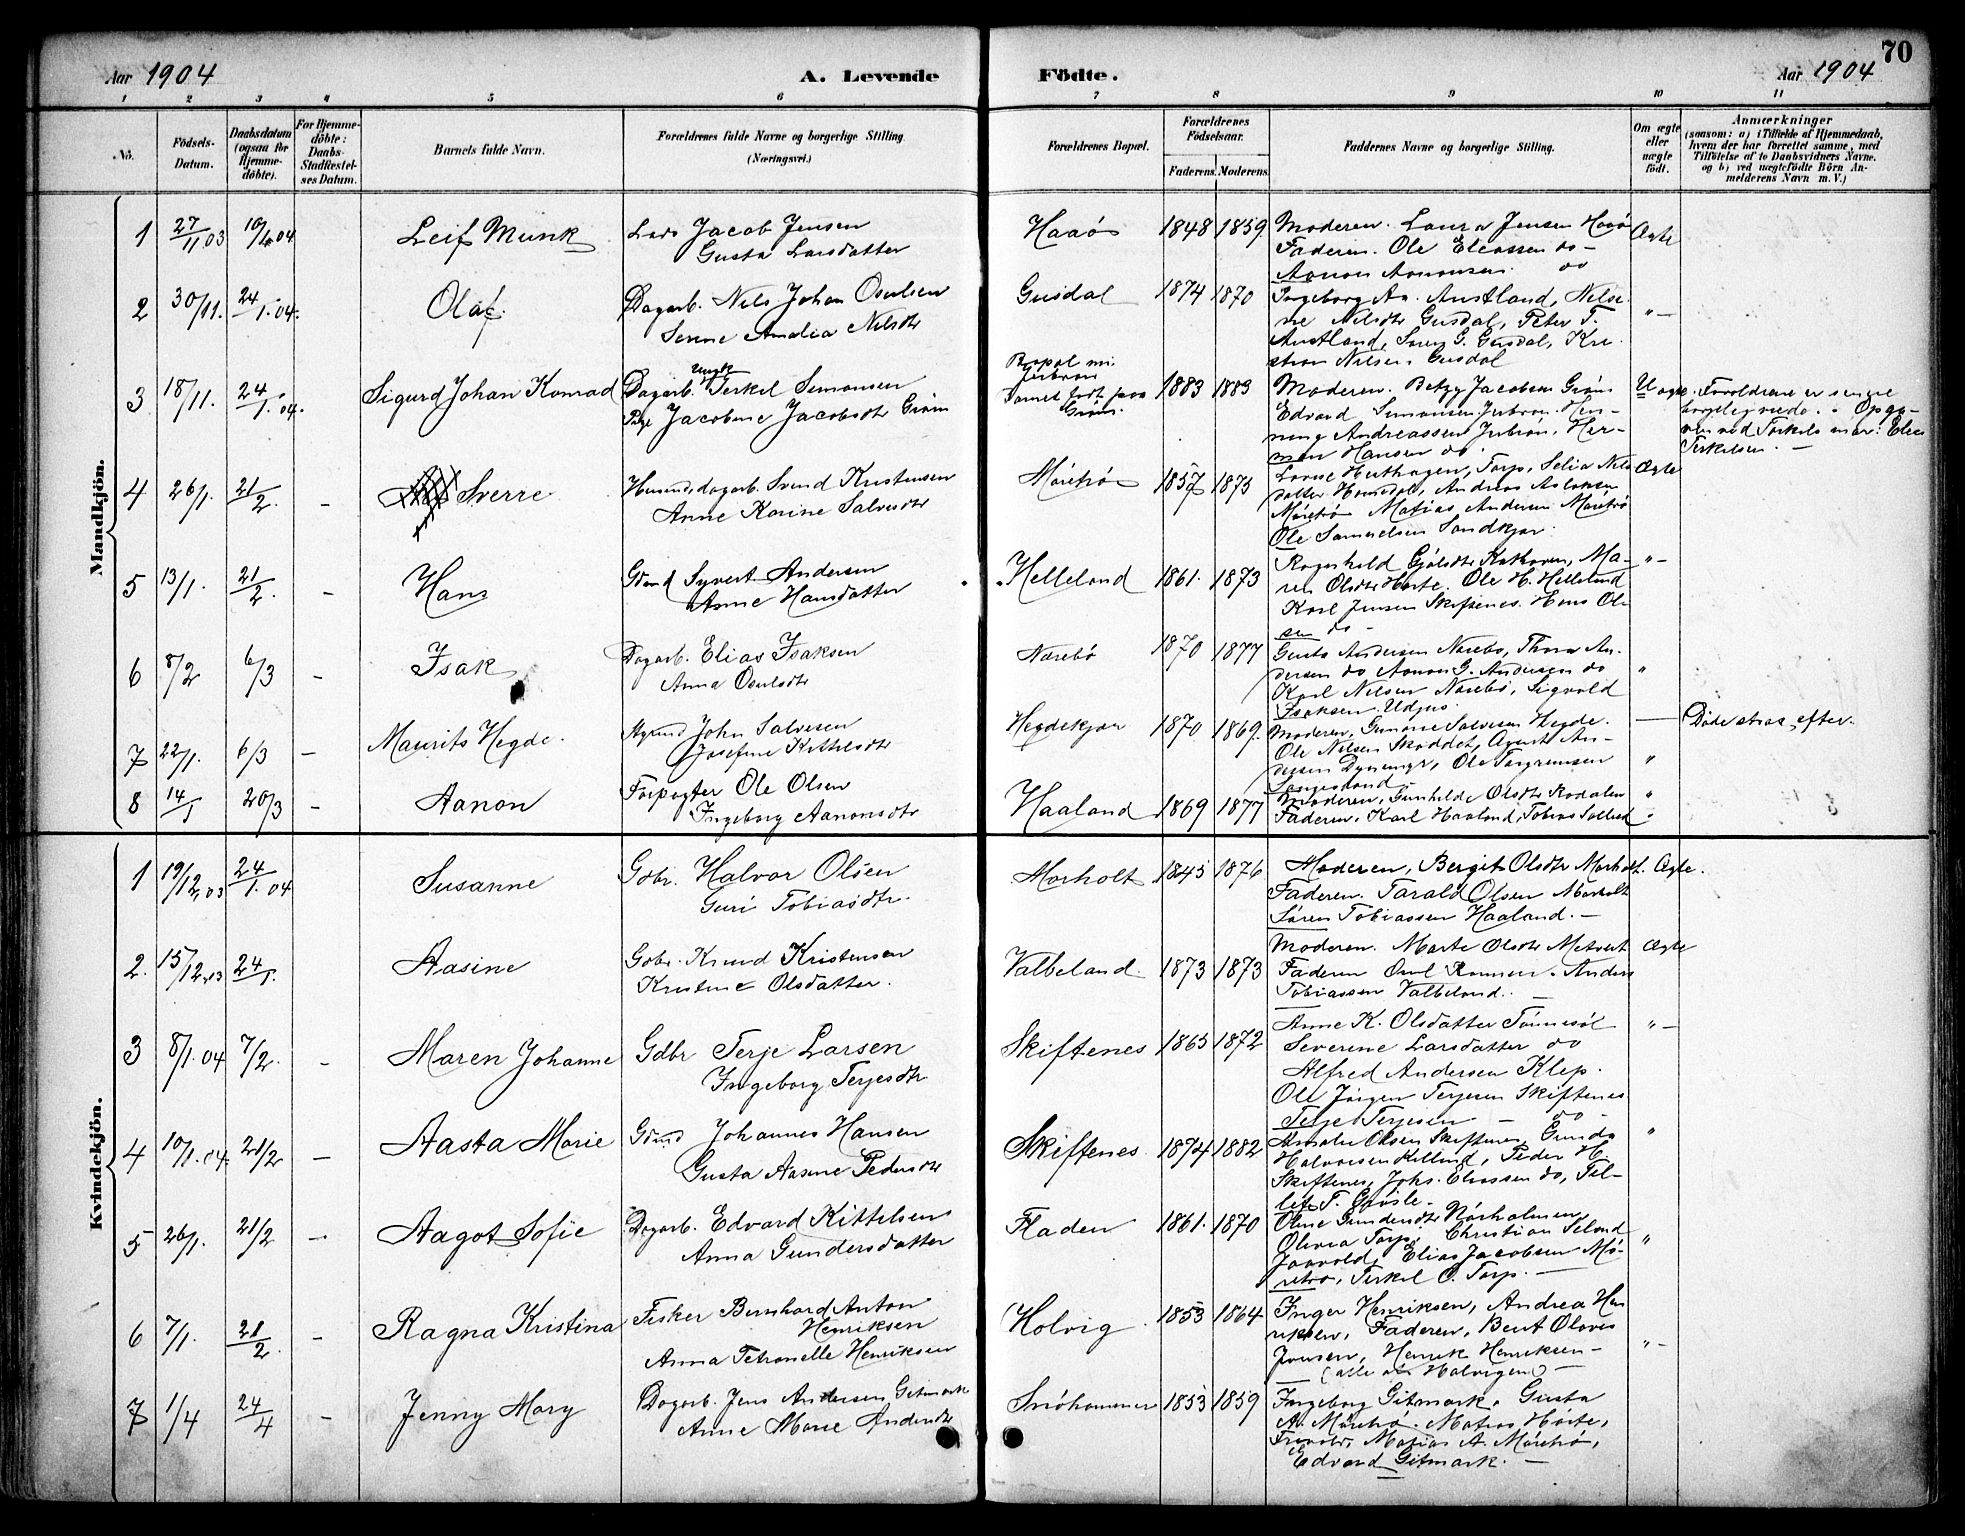 70
Aar 1904
A. Levende Födte.
Aar 1904
1 2 3 4 5 6 7 8 9 10 11
No.
Födsels-
Datum.
Daabsdatum
(ogsaa for
Hjemme-
döbte).
For Hjemme-
döbte:
Daabs-
Stadfæstel-
ses Datum.
Barnets fulde Navn.
Forældrenes fulde Navne og borgerlige Stilling
(Næringsvei.)
Forældrenes Bopæl.
Forældrenes
Födselsaar.
Faderens. Moderens.
Faddernes Navne og borgerlige Stilling.
Om ægte
eller
uægte
födt.
Anmærkninger
(saasom: a) i Tilfælde af Hjemmedaab,
hvem der har forrettet samme, med
Tilföielse af to Daabsvidners Navne,
og b) ved uægtefödte Börn An-
melderens Navn m. V.)
Mandkjön.
1 27/11 03 10/1 04 Leif Munk
Lars Jacob Jensen
Gusta Larsdatter
Haaö 1848 1859
Moderen. Laura Jensen Haaö
Faderen. Ole Eleassen do -
Aanon Aanonsen do
Ægte
2 30/11. 24/1.04. Olaf.
Dagarb. Nils Johan Osulsen
Serine Amalia Nilsdtr
Gusdal 1874 1870
Ingeborg Aa. Austland, Nilse-
ne Nilsdtr Gusdal, Peter T.
Austland, Sören G. Gusdal, Kri-
stian Nilsen Gusdal
" -
3 18/11. 24/1.04. Sigurd Johan Konrad
Ungk.
Dagarb. Terkel Simonsen
Pige Jacobine Jacobsdtr Gröm
Bopæl
Barnet födt paa
Gröm.
1883 1883
Moderen. Betzy Jacobsen Gröm
Edvard Simonsen. Hen-
ning Andreassen, Her-
man Hansen do
Uægte. Forældrene er senere
4 26/1. 21/2. - Sverre
Husmd. dagarb. Svend Kristensen
Anne Karine Salvesdtr
Möretrö 1857 1873
Torp, Selia Nils-
datter, Andreas Aslaksen
Möretrö Matias Andersen Möretrö
Ole Samuelsen Sandkjær.
Ægte
5 13/1. 21/2. - Hans
Gdmd Syvert Andersen
Anne Hansdatter
Helleland 1861. 1873
Ragnhild, Ma-
ren Olsdtr Hörte. Ole H. Helleland
Karl Jensen Skiftenes. Hans Ol-
sen do -
" -
6 8/2 6/3 - Isak
Dagarb. Elias Isaksen
Anna Osulsdtr
Narebö 1870 1877
Gusta Andersen Narebö, Thora An-
dersen do Aanon G. Andersen do
Karl Nilsen Narebö, Sigvald
Isaksen Udjus.
"
7 22/1. 6/3 - Maurits Hegde.
John Salvesen
Josefine Kittelsdtr
Hegdekjær 1870 1869.
Moderen, Gunarie Salvesen Hegde.
Ole Nilsen Skaddet, August An-
dersen, Ole Torgrimsen
- Döde strax efter.
"
8 14/1 20/3 - Aanon
Forpagter Ole Olsen
Ingeborg Aanonsdtr
Haaland 1869 1877
Moderen, Gunhilde Olsdtr Rodalen
Faderen. Karl Haaland, Tobias
"
Kvindekjön.
1 19/12,03 24/1.04 Susanne
Gdbr. Halvor Olsen
Guri Tobiasdtr.
Morholt 1845 1876
Moderen, Bergit Olsdtr Morholt.
Faderen. Tarald Olsen Morholt
Sören Tobiassen Haaland. -
Ægte.
2. 15/12.03 24/1. Aasine
Gdbr. Knud Kristensen
Kristine Olsdatter.
Valbeland. 1873 1873
Moderen. Marte Olsdtr
Faderen. Anders
Tobiassen Valbeland. -
Ægte
3 8/1.04 7/2. - Maren Johanne
Gdbr Terje Larsen
Ingeborg Terjesdtr
Skiftenes 1865 1872
Anne K. Olsdatter Tönnesöl
Severine Larsdatter do
Alfred Andersen Klep.
Ole Jörgen Terjesen Skiftenes
Terje Terjesen - do -
" -
4 10/1.04. 21/2 - Aasta Marie
Gdmd Johannes Hansen
Gusta Aasine Pedersdtr
Skiftenes. 1874 1882
Amalie Olsen Skiftenes, Gunda
Halvorsen, Peder H.
Skiftenes, Johs. Eliassen do, Tel-
lef T.
"
5 26/1. 21/2 - Aagot Sofie
Dagarb. Edvard Kittelsen
Anna Gundersdatter
Fladen 1861. 1870
Oline Gundersdtr Nörholmen
Olivia Torp, Christian
Elias Jacobsen Mö-
retrö, Terkel O. Torp. -
"
6 7/1. 21/2. - Ragna Kristina
Fisker Bernhard Anton
Henriksen
Anna Petronelle Henriksen
Holvig. 1853 1864
Inger Henriksen, Andrea Hen-
riksen, Faderen, Bent Olaves
Jensen, Henrik Henriksen -
(alle af Holvigen) -
" -
7 1/4 24/4 - Jenny Mary
Dagarb. Jens Andersen Gitmark
Anne Marie Andersdtr
Snöhammer 1853 1859
Ingeborg Gitmark. Gusta
A. Möretrö. Matias Hörte,
Matias A. Möretrö,
Edvard Gitmark. -